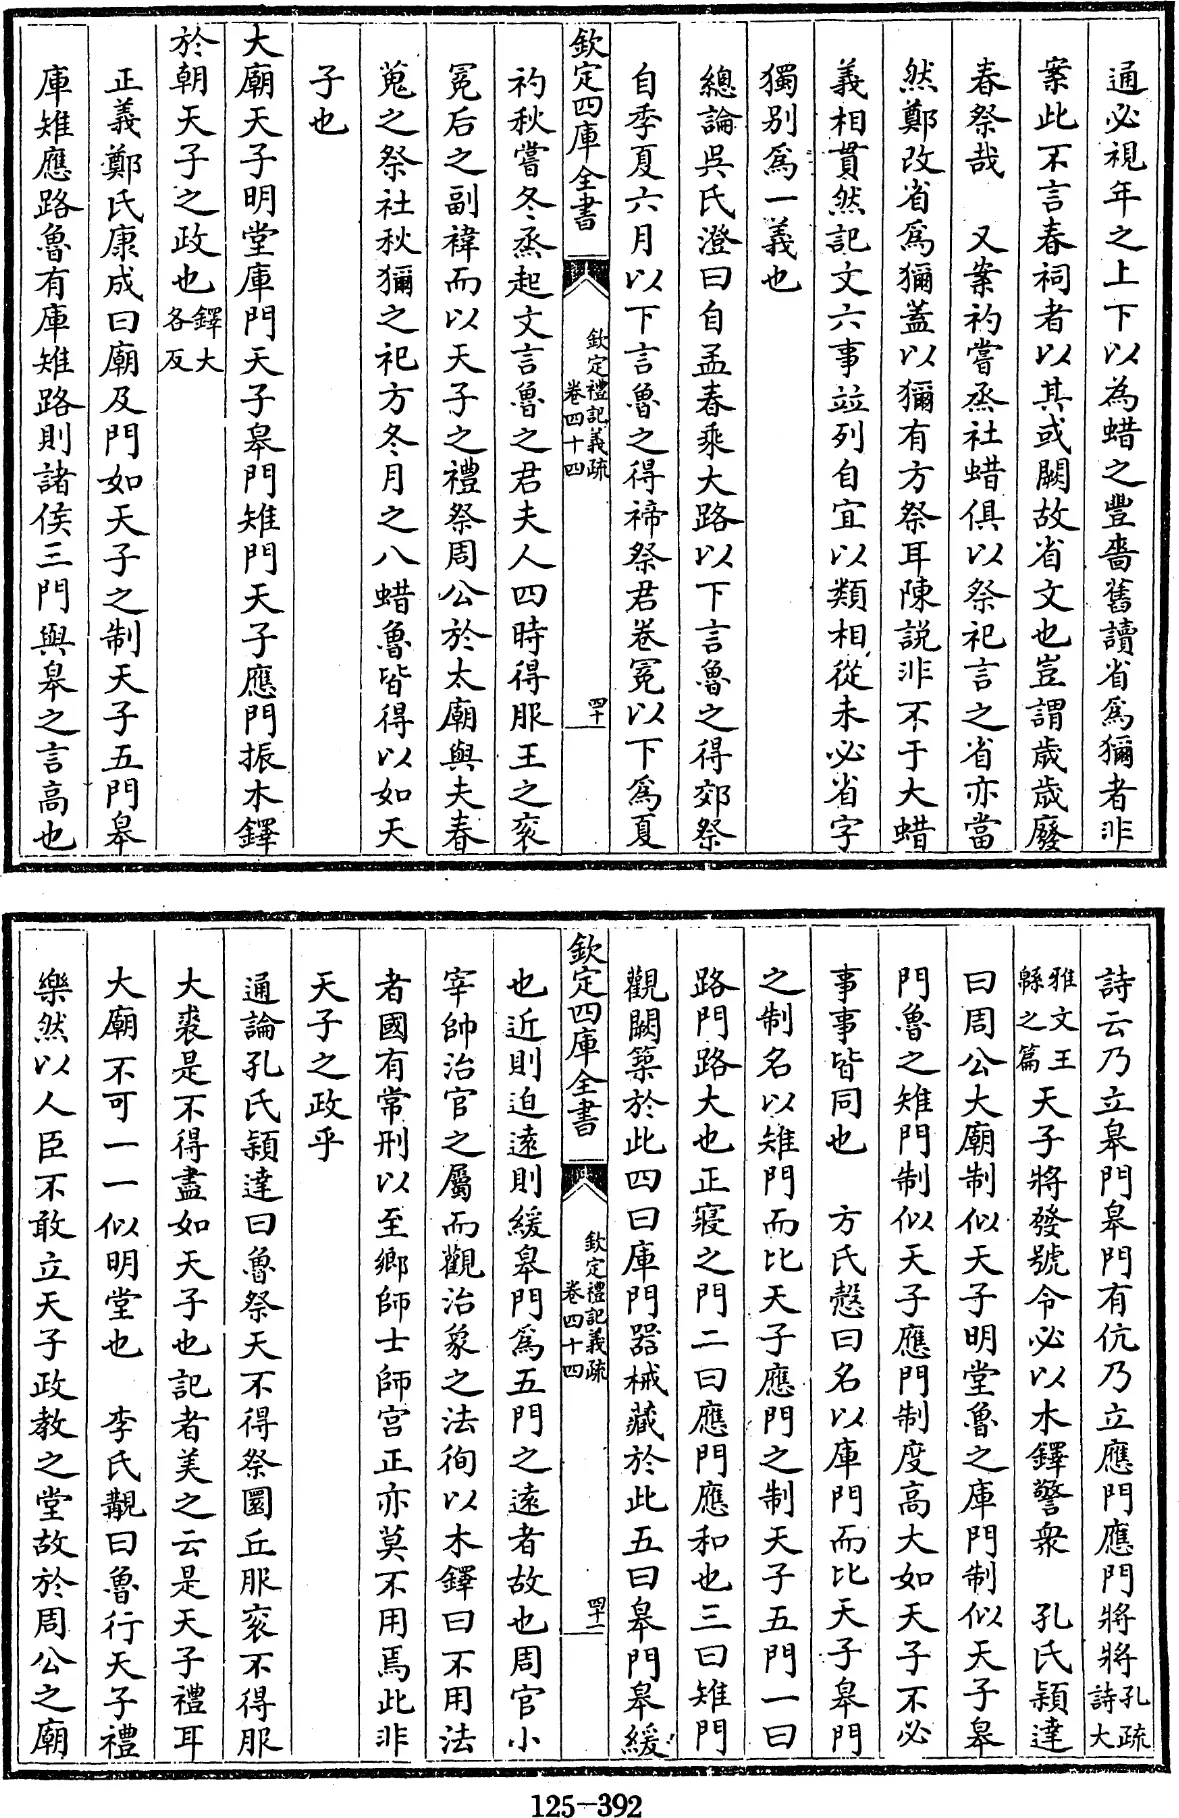 通必視年之上下以為蜡之豐嗇舊讀省爲獮者非
案此不言春祠者以其或闕故省文也豈謂歲歲廢
春祭哉　又案礿嘗烝社蜡俱以祭祀言之省亦當
然鄭改省爲獮蓋以獮有方祭耳陳説非不于大蜡
義相貫然記文六事竝列自宜以類相從未必省字
獨别爲一義也
總論吳氏澄曰自孟春乘大路以下言魯之得郊祭
自季夏六月以下言魯之得禘祭君卷冕以下爲夏
欽定四庫全書
欽定禮記義疏
卷四十四
四十
礿秋嘗冬烝起文言魯之君夫人四時得服王之衮
冕后之副褘而以天子之禮祭周公於太廟與夫春
蒐之祭社秋獮之祀方冬月之八蜡魯皆得以如天
子也
大廟天子明堂庫門天子皋門雉門天子應門振木鐸
於朝天子之政也鐸大
各反
正義鄭氏康成曰廟及門如天子之制天子五門皋
庫雉應路魯有庫雉路則諸侯三門與皋之言高也
詩云乃立皋門皋門有伉乃立應門應門將將孔疏
詩大
雅文王
緜之篇天子將發號令必以木鐸警衆　孔氏穎達
曰周公大廟制似天子明堂魯之庫門制似天子皋
門魯之雉門制似天子應門制度高大如天子不必
事事皆同也　方氏慤曰名以庫門而比天子皋門
之制名以雉門而比天子應門之制天子五門一曰
路門路大也正寢之門二曰應門應和也三曰雉門
觀闕築於此四曰庫門器械藏於此五曰皋門皋緩
欽定四庫全書
欽定禮記義疏
卷四十四
四十一
也近則迫遠則緩皋門爲五門之遠者故也周官小
宰帥治官之屬而觀治象之法徇以木鐸曰不用法
者國有常刑以至鄉師士師宫正亦莫不用焉此非
天子之政乎
通論孔氏穎達曰魯祭天不得祭圜丘服衮不得服
大裘是不得盡如天子也記者美之云是天子禮耳
大廟不可一一似明堂也　李氏覯曰魯行天子禮
樂然以人臣不敢立天子政教之堂故於周公之廟
125-392